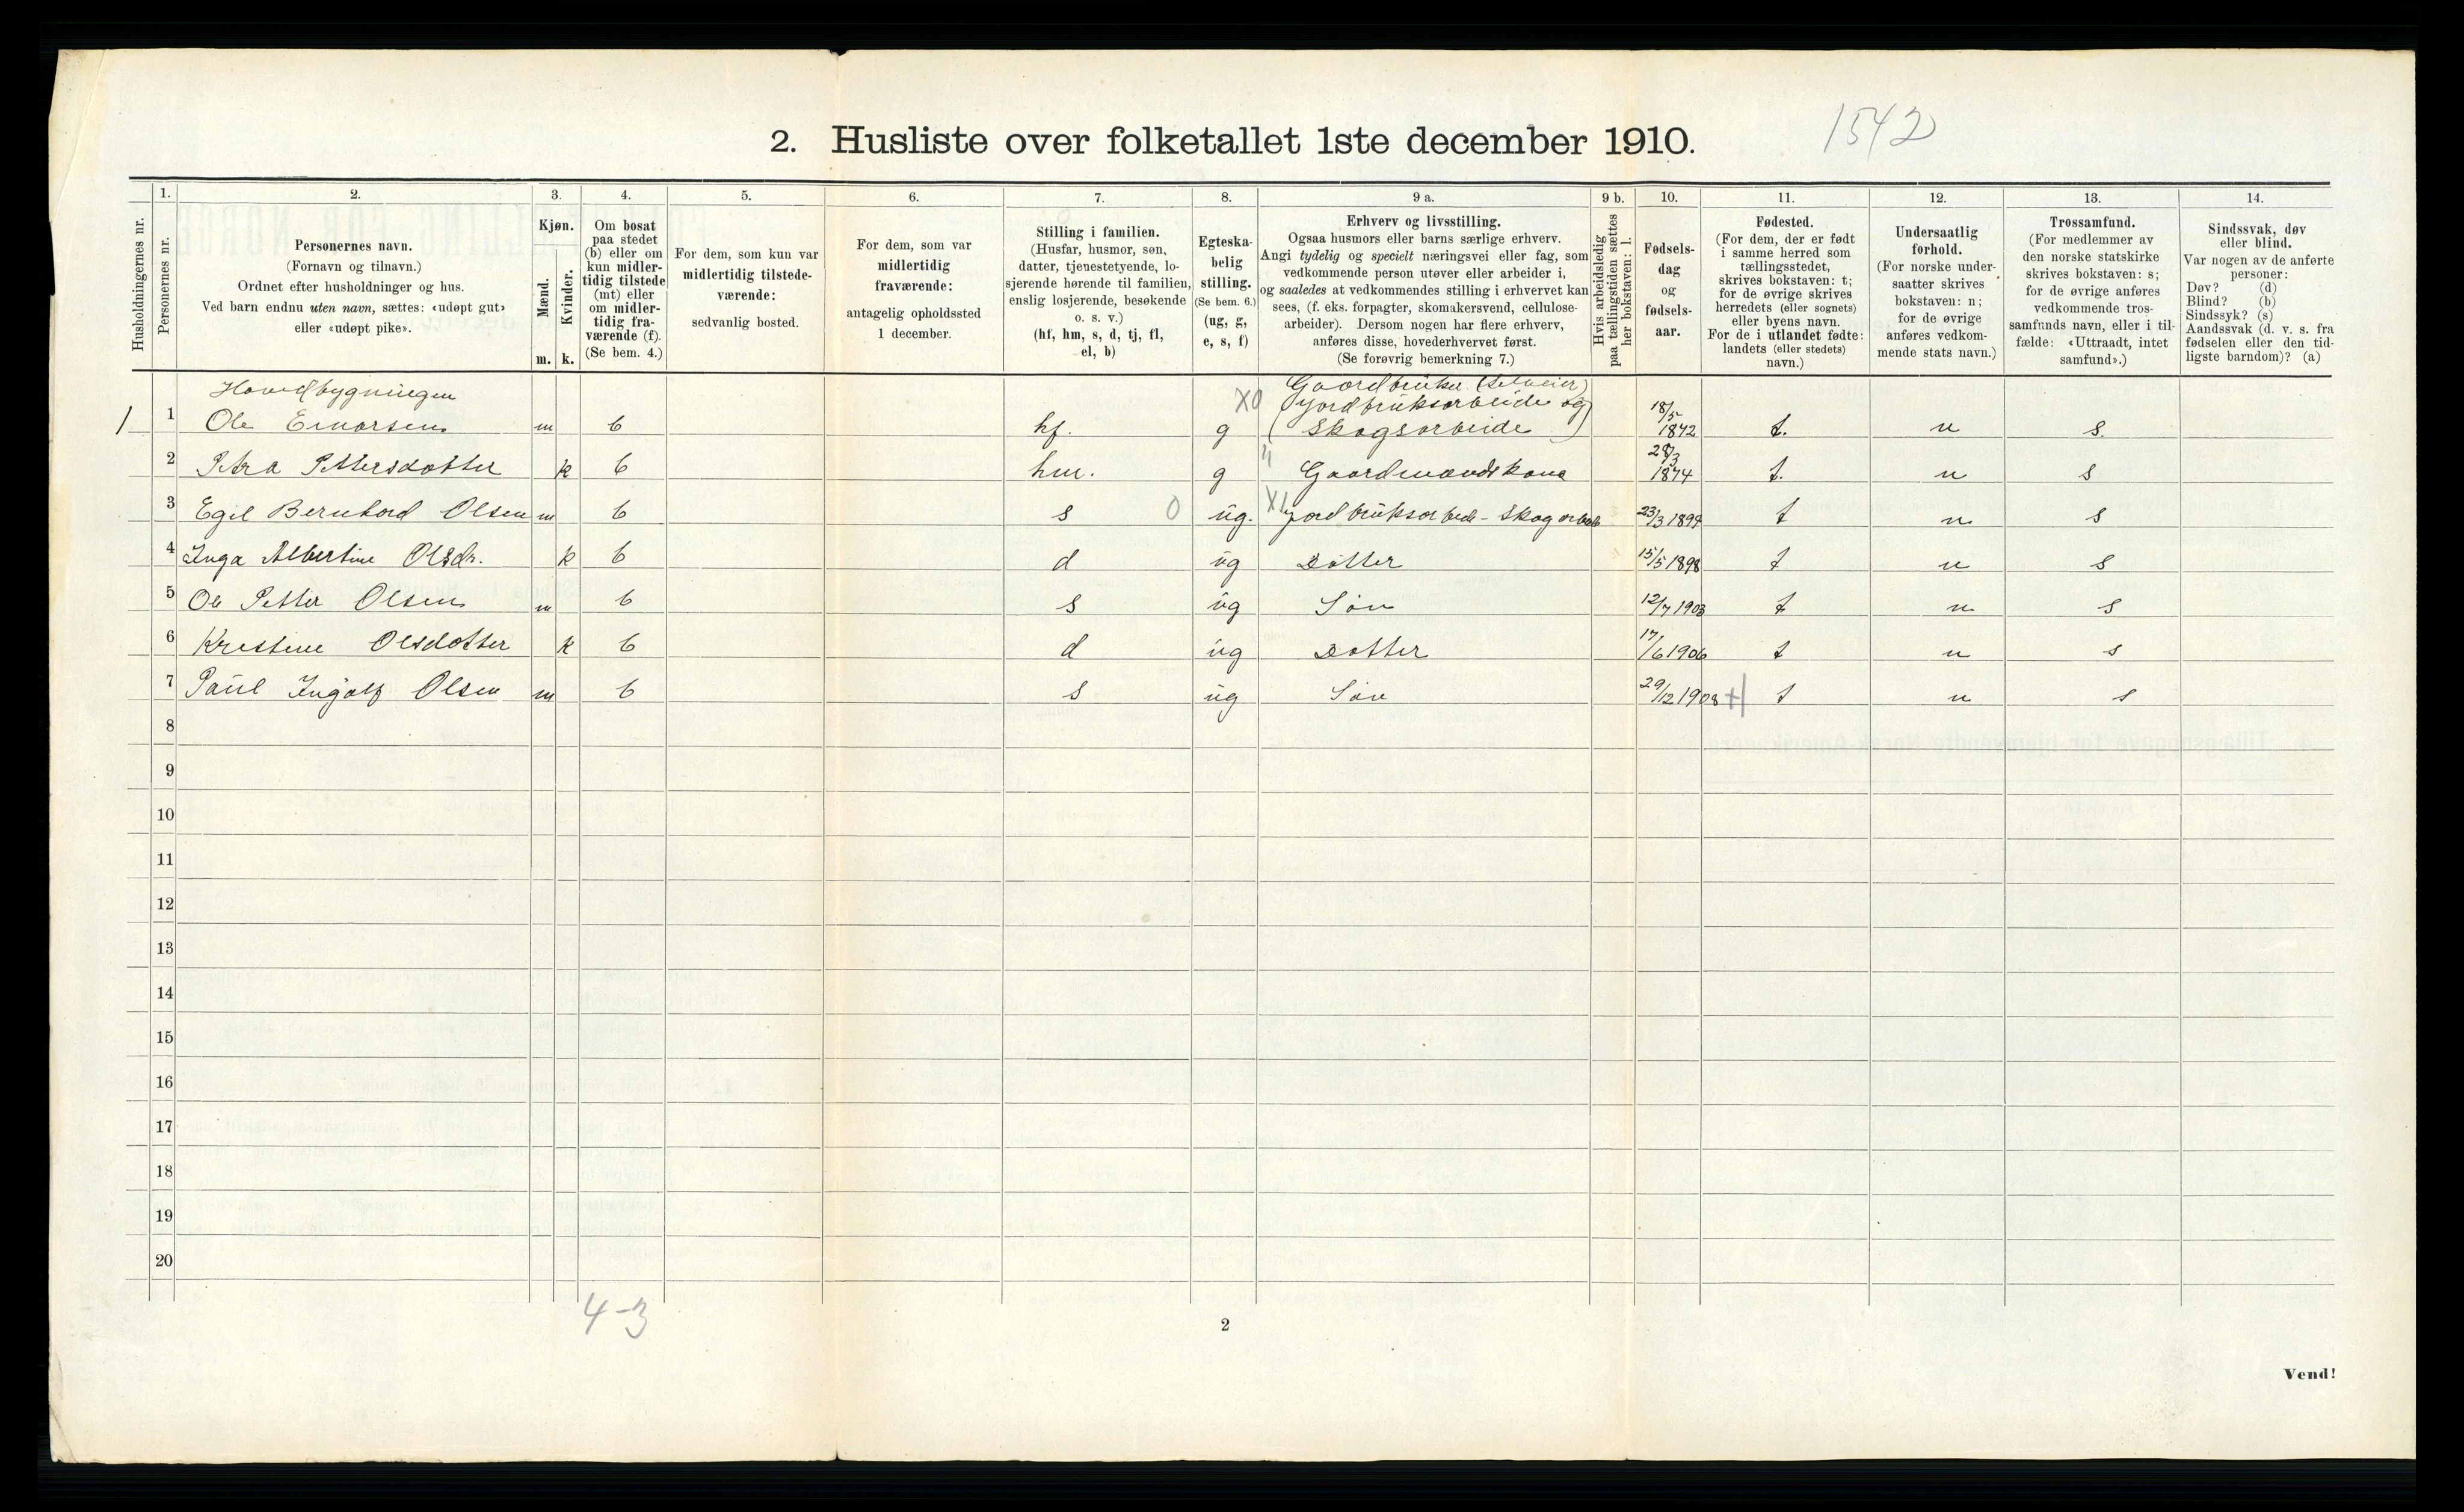 2. Husliste over folketallet 1ste december 1910.
1542
Husholdningernes nr.
1.
Personernes nr.
2.
Personernes navn.
(Fornavn og tilnavn.)
Ordnet efter husholdninger og hus.
Ved barn endnu uten navn, sættes: «udøpt gut»
eller «udøpt pike».
3.
Kjøn.
Mænd.
Kvinder.
m. k.
4.
Om bosat
paa stedet
(b) eller om
kun midler-
tidig tilstede
(mt) eller
om midler-
tidig fra-
værende (f).
(Se bem. 4.)
5.
For dem, som kun var
midlertidig tilstede-
værende:
sedvanlig bosted.
6.
For dem, som var
midlertidig
fraværende:
antagelig opholdssted
1 december.
7.
Stilling i familien.
(Husfar, husmor, søn,
datter, tjenestetyende, lo-
sjerende hørende til familien,
enslig losjerende, besøkende
o. s. v.)
(hf, hm, s, d, tj, fl,
el, b)
8.
Egteska-
belig
stilling.
(Se bem. 6.)
(ug, g,
e, s, f)
9 a.
Erhverv og livsstilling.
Ogsaa husmors eller barns særlige erhverv.
Angi tydelig og specielt næringsvei eller fag, som
vedkommende person utøver eller arbeider i,
og saaledes at vedkommendes stilling i erhvervet kan
sees, (f. eks. forpagter, skomakersvend, cellulose-
arbeider). Dersom nogen har flere erhverv,
anføres disse, hovederhvervet først.
(Se forøvrig bemerkning 7.)
9 b.
Hvis arbeidsledig
paa tællingstiden sættes
her bokstaven: l.
10.
Fødsels-
dag
og
fødsels-
aar.
11.
Fødested.
(For dem, der er født
i samme herred som
tællingsstedet,
skrives bokstaven: t;
for de øvrige skrives
herredets (eller sognets)
eller byens navn.
For de i utlandet fødte:
landets (eller stedets)
navn.)
12.
Undersaatlig
forhold.
(For norske under-
saatter skrives
bokstaven: n;
for de øvrige
anføres vedkom-
mende stats navn.)
13.
Trossamfund.
(For medlemmer av
den norske statskirke
skrives bokstaven: s;
for de øvrige anføres
vedkommende tros-
samfunds navn, eller i til-
fælde: «Uttraadt, intet
samfund».)
14.
Sindssvak, døv
eller blind.
Var nogen av de anførte
personer:
Døv? (d)
Blind? (b)
Sindssyk? (s)
Aandssvak (d. v. s. fra
fødselen eller den tid-
ligste barndom)? (a)
Hovedbygningen Gaardbruker (Selveier)
X0 (Jordbruksarbeide og
1 1 Ole Einarsen m b hf. g Skogsarbeide) 18/5 1842 t. n s.
2 Petra Pettersdatter k b hm. g " Gaardmandskone 28/3 1874 t. n s
3 Egil Bernhard Olsen m b s 0 ug. X1 Jordbruksarbeide - Skogarbeide 23/3 1894 t n s
4 Inga Albertine Olsdr. k b d ug Dotter 15/5 1898 t n s
5 Ole Petter Olsen m b s ug Søn 12/7 1903 t n s
6 Kristine Olsdotter k b d ug Dotter 17/6 1906 t n s
7 Paul Ingolf Olsen m b s ug Søn 29/12 1908 t n s
8
9
10
11
12
13
14
15
16
17
18
19
20
4-3
2
Vend!